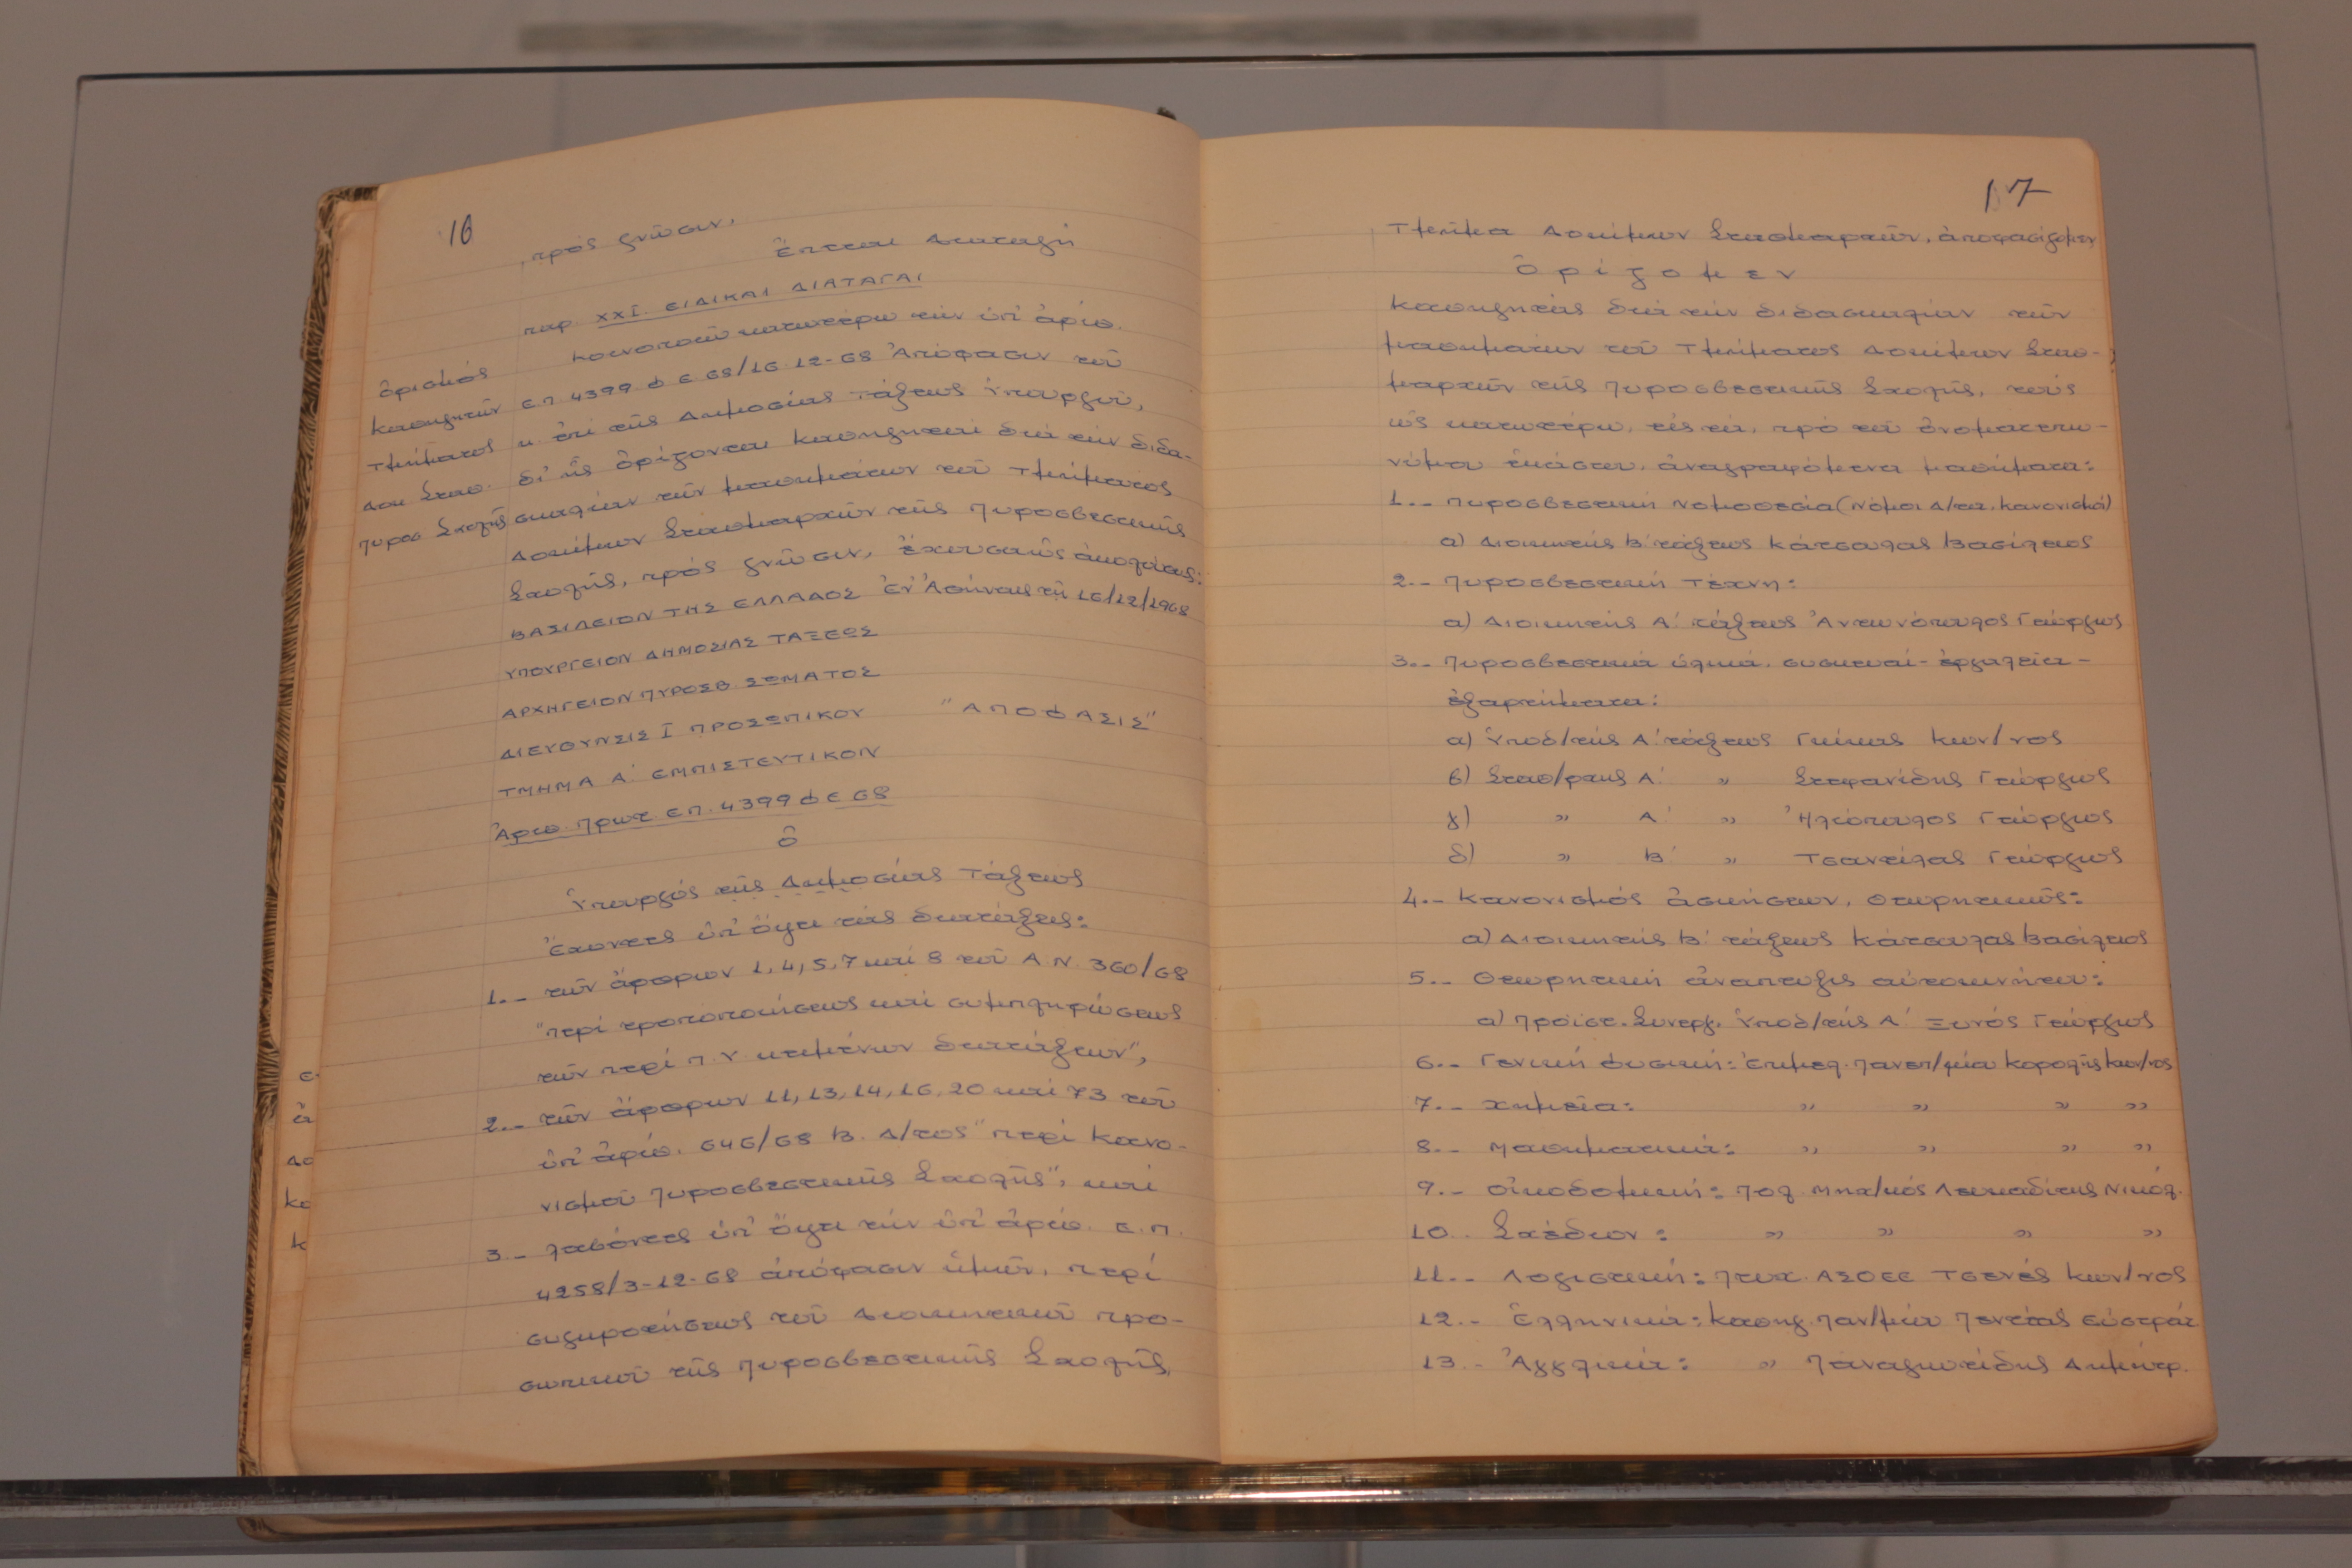 16
πρὸς γνῶσιν.
Ἕπεται Διαταγή
παρ. XXI. ΕΙΔΙΚΑΙ ΔΙΑΤΑΓΑΙ
Κοινοποιῶ κατωτέρω τήν ὑπ' ἀριθ.
Ὁρισμός
Καθηγητῶν
Τμήματος
Δοκ Σταθ.
Πυροσ Σχολῆς
Ε.Π. 4399 Φ Ε 68/16-12-68 Ἀπόφασιν τοῦ
κ. ἐπί τῆς Δημοσίας Τάξεως Ὑπουργοῦ,
δι' ἧς ὁρίζονται Καθηγηταί διά τήν διδα-
σκαλίαν τῶν μαθημάτων τοῦ Τμήματος
Δοκίμων Σταθμαρχῶν τῆς Πυροσβεστικῆς
Σχολῆς, πρός γνῶσιν, ἔχουσα ὡς ἀκολούθως:
ΒΑΣΙΛΕΙΟΝ ΤΗΣ ΕΛΛΑΔΟΣ Ἐν Ἀθήναις τῇ 16/12/1968
ΥΠΟΥΡΓΕΙΟΝ ΔΗΜΟΣΙΑΣ ΤΑΞΕΩΣ
ΑΡΧΗΓΕΙΟΝ ΠΥΡΟΣΒ ΣΩΜΑΤΟΣ
ΔΙΕΥΘΥΝΣΙΣ Ι ΠΡΟΣΩΠΙΚΟΥ "ΑΠΟΦΑΣΙΣ"
ΤΜΗΜΑ Α' ΕΜΠΙΣΤΕΥΤΙΚΟΝ
Ἀριθ. Πρωτ. Ε.Π. 4399 Φ Ε 68
Ὁ
Ὑπουργός τῆς Δημοσίας Τάξεως
Ἔχοντες ὑπ' ὄψει τάς διατάξεις:
1.- τῶν ἄρθρων 1, 4, 5, 7 καί 8 τοῦ Α.Ν. 360/68
"περί τροποποιήσεως καί συμπληρώσεως
τῶν περί Π.Υ κειμένων διατάξεων",
2.- τῶν ἄρθρων 11, 13, 14, 16, 20 καί 73 τοῦ
ὑπ' ἀριθ. 646/68 Β. Δ/τος "περί Κανο-
νισμοῦ Πυροσβεστικῆς Σχολῆς", καί
3.- λαβόντες ὑπ' ὄψει τήν ὑπ' ἀριθ. Ε.Π.
4258/3-12-68 ἀπόφασιν ἡμῶν, περί
συγκροτήσεως τοῦ Διοικητικοῦ προ-
σωπικοῦ τῆς Πυροσβεστικῆς Σχολῆς,
17
Τμῆμα Δοκίμων Σταθμαρχῶν, ἀποφασίζομεν
ὁρίζομεν
Καθηγητάς διά τήν διδασκαλίαν τῶν
μαθημάτων τοῦ Τμήματος Δοκίμων Σταθ-
μαρχῶν τῆς Πυροσβεστικῆς Σχολῆς, τούς
ὡς κατωτέρω, εἰς τά, πρό τοῦ ὀνοματεπω-
νύμου ἑκάστου, ἀναγραφόμενα μαθήματα:
1.- Πυροσβεστική Νομοθεσία (Νόμοι Δ/τα. Κανονισμοί)
α) Διοικητής Β' τάξεως Κάτσουλας Βασίλειος
2.- Πυροσβεστική Τέχνη:
α) Διοικητής Α' τάξεως Ἀντωνόπουλος Γεώργιος
3.- Πυροσβεστικά ὑλικά, συσκευαί - ἐργαλεῖα -
ἐξαρτήματα:
α) Ὑποδ/τής Α' τάξεως Γκίκας Κων/νος
β) Σταθ/ρχης Α' " Στεφανίδης Γεώργιος
γ) " Α' " Ἠλιόπουλος Γεώργιος
δ) " Β' " Τσαντίλας Γεώργιος
4.- Κανονισμός ἀσκήσεων, θεωρητικῶς:
α) Διοικητής Β' τάξεως Κάτσουλας Βασίλειος
5.- Θεωρητική ἀνάπτυξις αὐτοκινήτου:
α) Προϊστ. Συνεργ. Ὑποδ/τής Α' Ξυνός Γεώργιος
6.- Γενική Φυσική: Ἐπιμελ. Πανεπ/μίου Κορολῆς Κων/νος
7.- Χημεία: " " " "
8.- Μαθηματικά: " " " "
9.- Οἰκοδομική: Πολ. Μηχ/κός Λευκαδίτης Νικόλ.
10.- Σχέδιον: " " " "
11.- Λογιστική: Πτυχ. ΑΣΟΕΕ Τσενές Κων/νος
12.- Ἑλληνικά: Καθηγ. Παν/μίου Πεντέας Εὐστράτ
13.- Ἀγγλικά: " Παναγιωτίδης Δημήτρ.